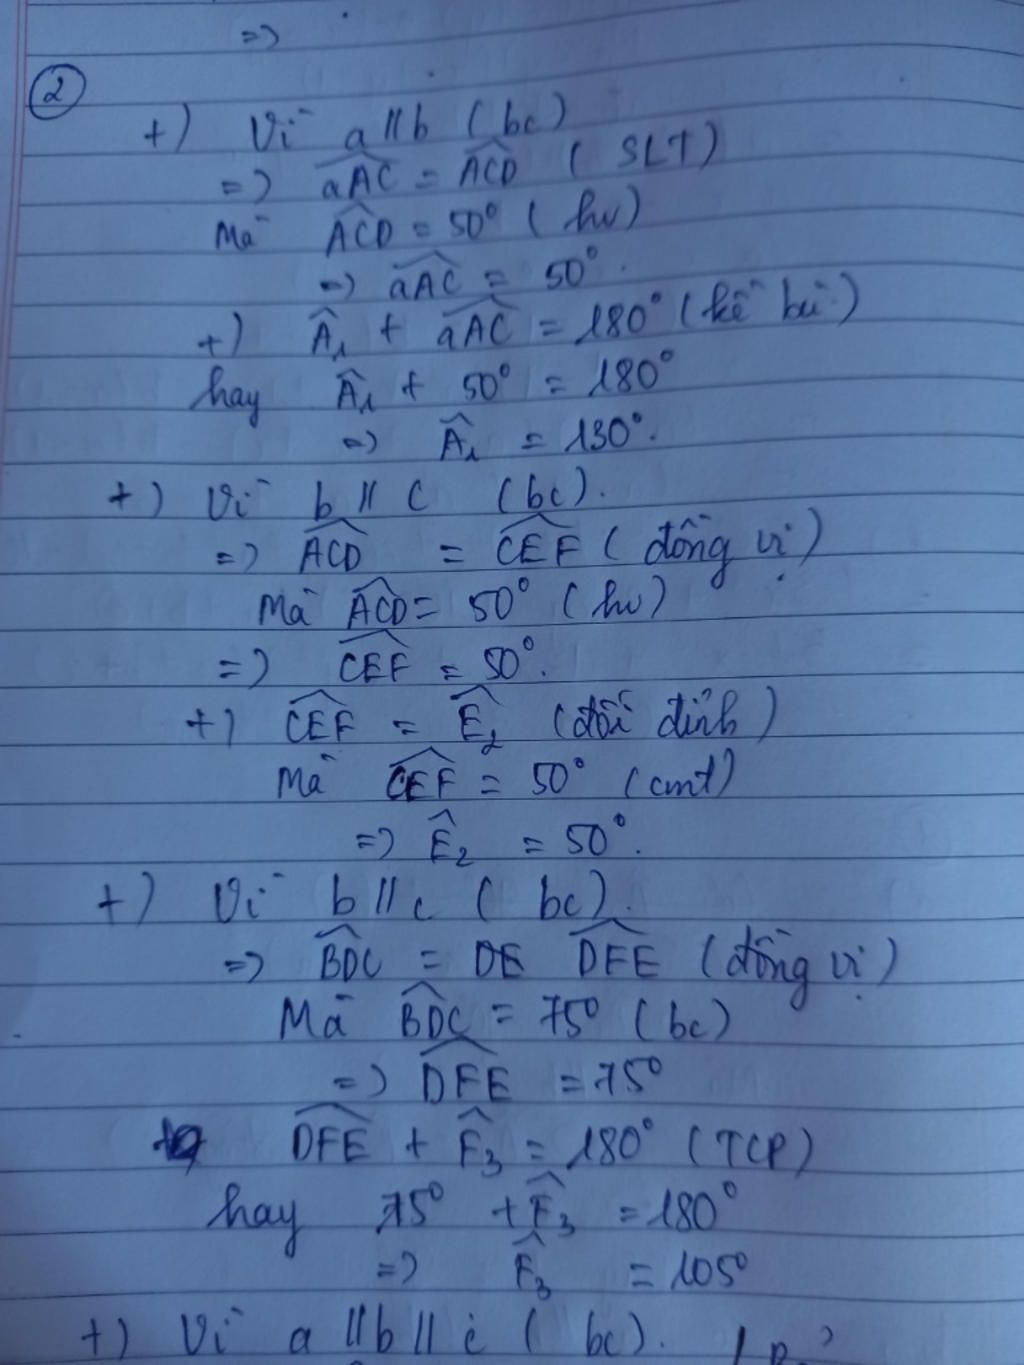 =>
2
+) Vì a // b (bc)
=> aAC = ACD (SLT)
Mà ACD = 50° (hv)
=> aAC = 50°.
+) Â₁ + aAC = 180° (kề bù)
hay Â₁ + 50° = 180°
=> Â₁ = 130°.
+) Vì b // c (bc).
=> ACD = CEF (đồng vị)
Mà ACD = 50° (hv)
=> CEF = 50°.
+) CEF = Ê₂ (đối đỉnh)
Mà CEF = 50° (cmt)
=> Ê₂ = 50°.
+) Vì b // c (bc).
=> BDC = DE DFE (đồng vị)
Mà BDC = 75° (bc)
=> DFE = 75°
DFE + F̂₃ = 180° (TCP)
hay 75° + F̂₃ = 180°
=> F̂₃ = 105°
+) Vì a // b // c (bc).